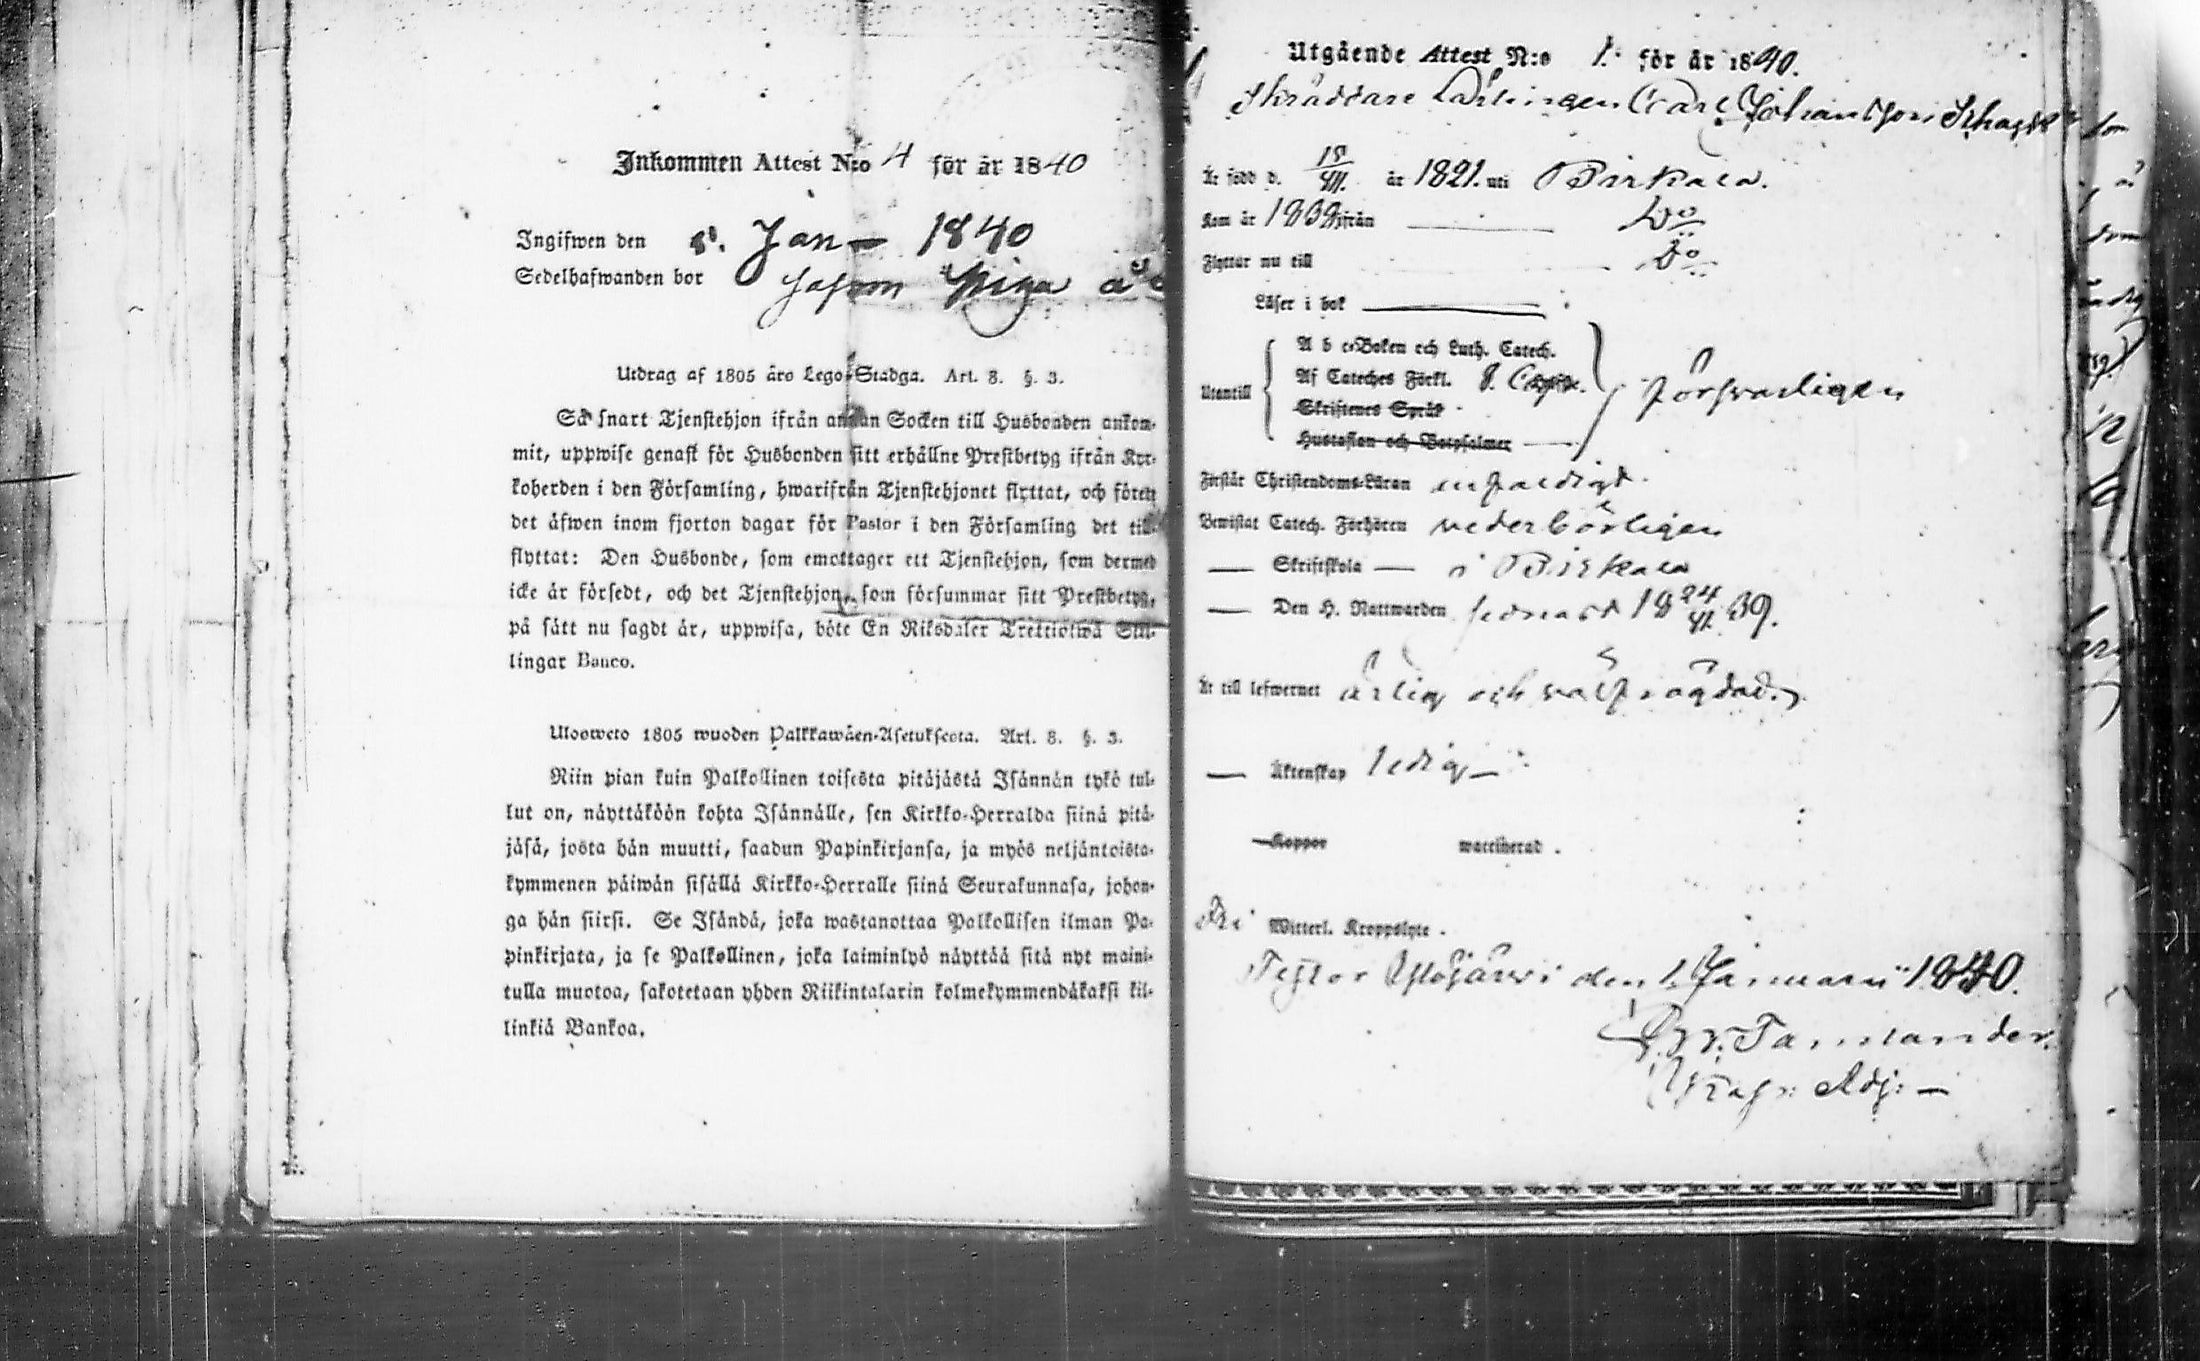 Inkommen Attest N:o 4 för år 1840
Ingifwen den 8. Jan 1840
Sedelhafwanden bor såsom Piga å
Utdrag af 1805 års Lego-Stadga. Art. 8. §. 3.
Så snart Tjenstehjon ifrån annan Socken till Husbonden ankom-
mit, uppwise genast för Husbonden sitt erhållne Prestbetyg ifrån Kyr-
koherden i den Församling, hwarifrån Tjenstehjonet flyttat, och förete
det äfwen inom fjorton dagar för Pastor i den Församling det till-
flyttat: Den Husbonde, som emottager ett Tjenstehjon, som dermed
icke är försedt, och det Tjenstehjon, som försummar sitt Prestbetyg,
på sätt nu sagdt är, uppwisa, böte En Riksdaler Trettiotwå Skil-
lingar Banco.
Ulosweto 1805 wuoden Palkkawäen-Asetuksesta. Art. 8. §. 3.
Niin pian kuin Palkollinen toisesta pitäjästä Isännän tykö tul-
lut on, näyttäköön kohta Isännälle, sen Kirkko-Herralda siinä pitä-
jäsä, josta hän muutti, saadun Papinkirjansa, ja myös neljäntoista-
kymmenen päiwän sisällä Kirkko-Herralle siinä Seurakunnasa, johon-
ga hän siirsi. Se Isändä, joka wastanottaa Palkollisen ilman Pa-
pinkirjata, ja se Palkollinen, joka laiminlyö näyttää sitä nyt maini-
tulla muotoa, sakotetaan yhden Riikintalarin kolmekymmendäkaksi kil-
linkiä Bankoa.
Utgående Attest N:o 1. för år 1840.
Skräddare Lärlingen Carl Johansson
Är född d. 15/VII. år 1821. uti Birkala.
Kom år 1838 ifrån Do
Flyttar nu till Do
Läser i bok
Utantill
A b c-Boken och Luth. Catech.
Af Cateches Förkl.
Skriftenes Språk
Hustaflan och Botpsalmer
försvarligen
Förstår Christendoms-Läran enfaldigt.
Bewistat Catech. Förhören vederbörligen
— Skriftskola — i Birkala
— Den H. Nattwarden sednast 18 24/VI. 39.
Är till lefwernet ärlig och välfrägdad.
— Äktenskap ledig
Koppor waccinerad .
Fri Witterl. Kroppslyte .
Testor Ylöjärvi den 1. Januarii 1840.
Tamlander.
Adj: